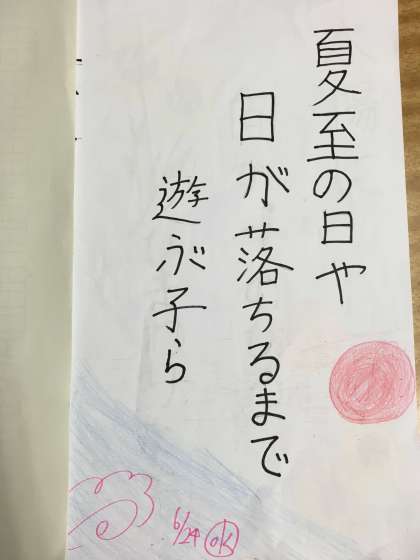 夏至の日や
日が落ちるまで
遊ぶ子ら
6/24 ok